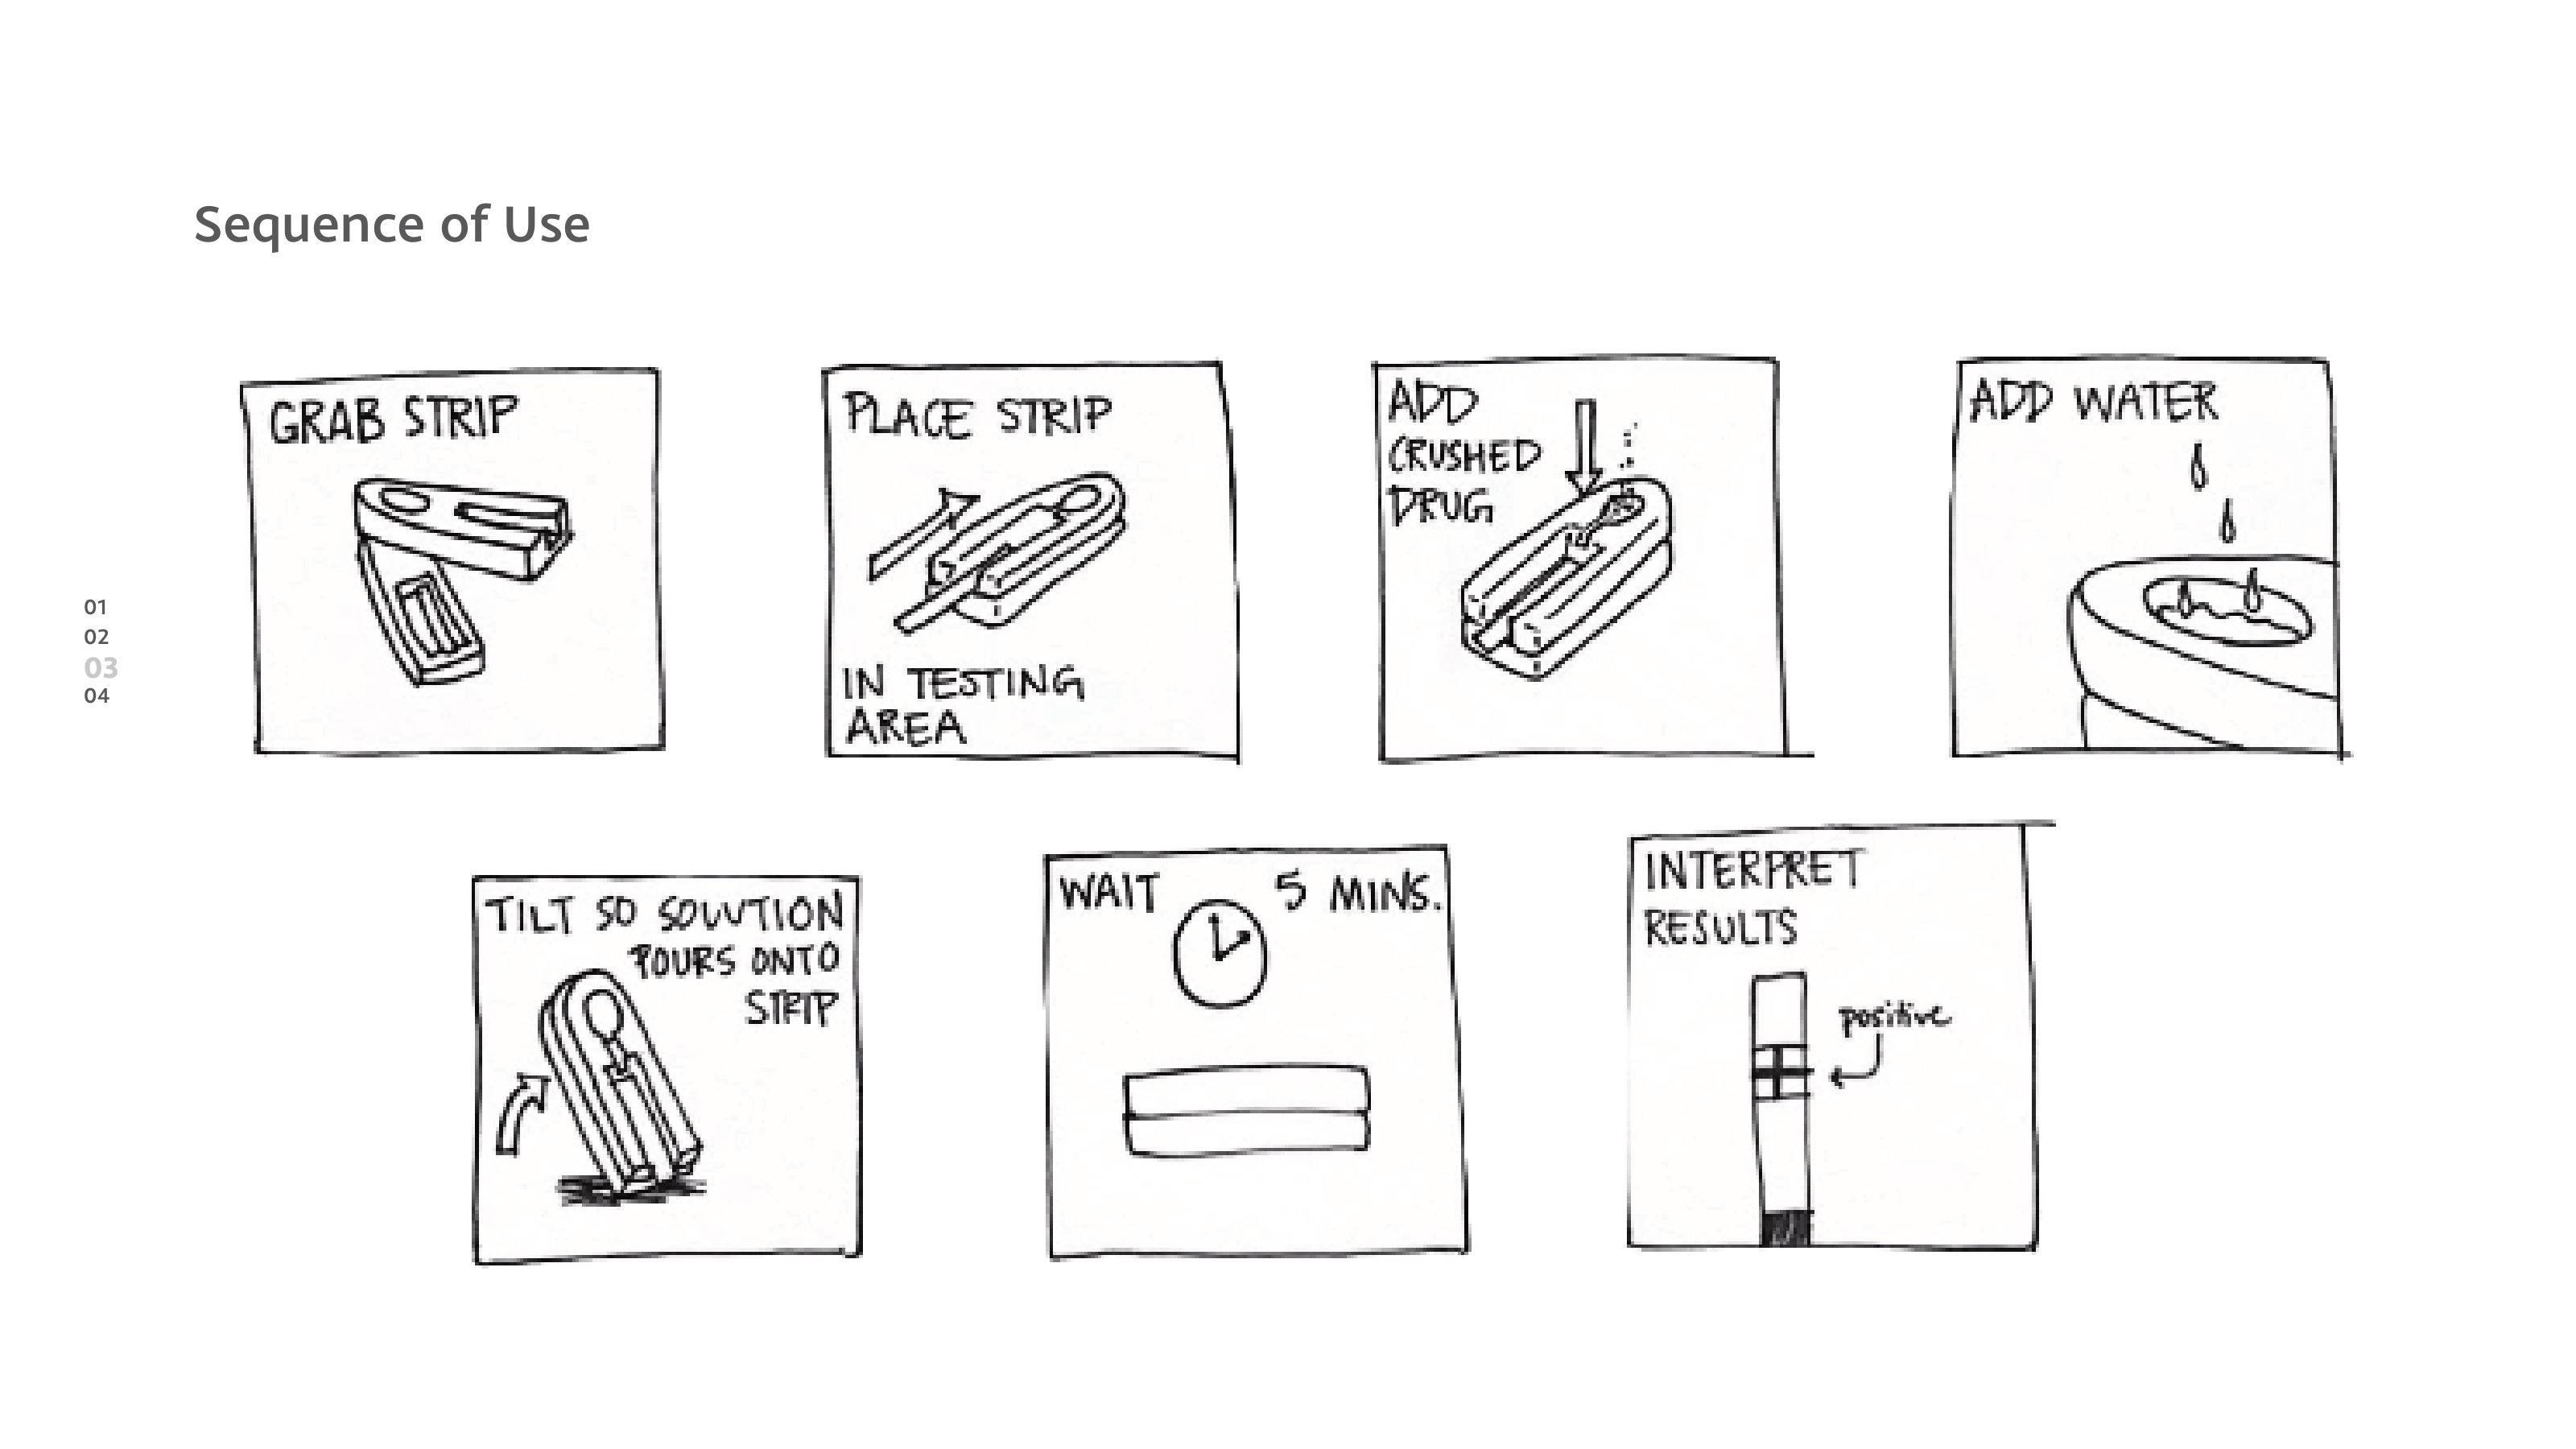 Sequence of Use
GRAB STRIP
PLACE STRIP
IN TESTING
AREA
ADD
CRUSHED
DRUG
ADD WATER
01
02
03
04
TILT SO SOLUTION
POURS ONTO
STRIP
WAIT 5 MINS.
INTERPRET
RESULTS
positive